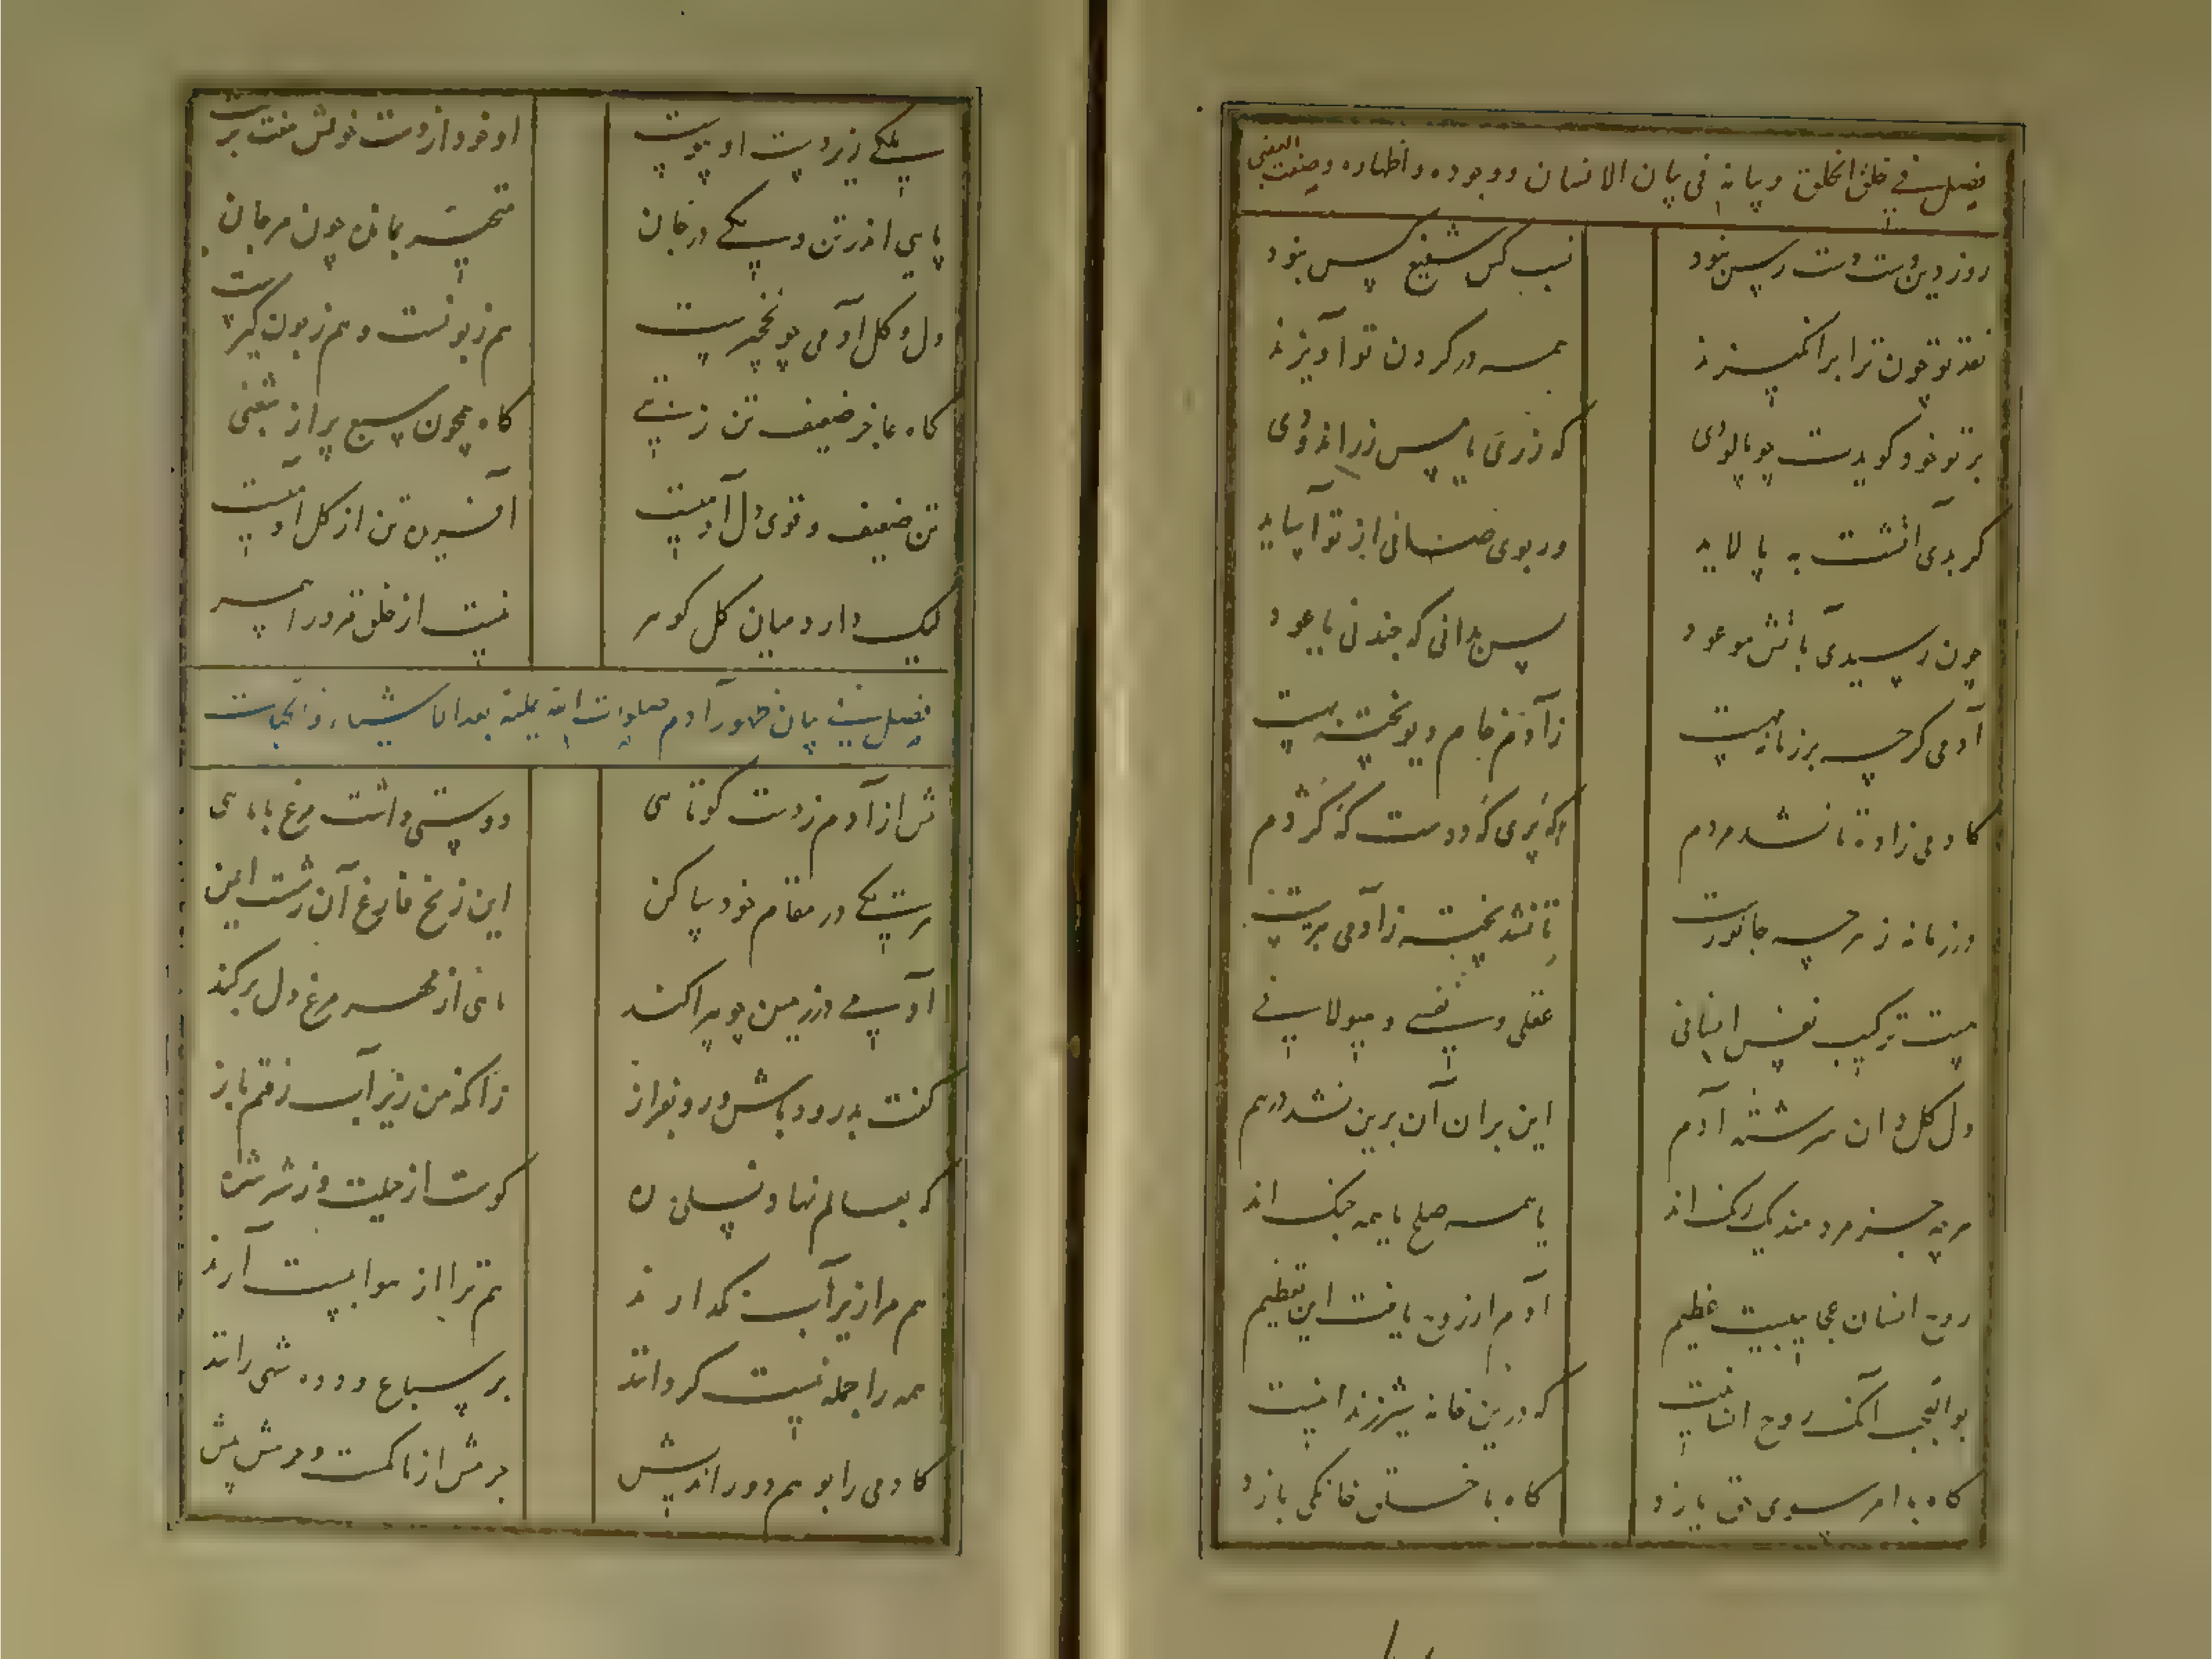 فصل فی خلق الخلق و بیانه فی بیان الانسان و وجوده و اظهاره و صفت
روز دین دست دست رس نبود
نسب کس شفیع کس نبود
نقد تو چون ترا برانگیزند
همه در گردن تو آویزند
بر تو خود گویدت چو پالودی
که زری یا مس زراندودی
گر بدی آتشت بپالاید
چون رسیدی بآتش موعود
پس بدانی که چندنی یا عود
آدمی گرچه بر زمانه مهست
ز آدم خام دیو پخته بهست
کادمی زاده تا نشد مردم
در زمانه ز هرچه جانورست
تا نشد پخته ز آدمی بترست
هست ترکیب نفس انسانی
عقلی و نفسی و هیولانی
دل گل دان سرشته آدم
این بران آن برین نشد درهم
هرچه جز مردمند یک رنگ اند
یا همه صلح یا همه جنگ اند
روح انسان عجایبیست عظیم
آدم از روح یافت این تعظیم
بوالعجب آنکه روح انسانیست
که درین خانه نیز زندانیست
گاه با امر سوی حق یازد
گاه با خلق خانگی بازد
او خود از دست خویش
پای اندر تن و یکی در جان
متحیر بمانده چون مرجان
دل و گل آدمی چو نخچیرست
هم زبونست و هم زبون گیرست
گاه عاجز ضعیف تن زنیی
گاه همچون سبع پر از منیی
تن ضعیف و قوی دل آدمیست
آفریده تن از گل آدمیست
لیک دارد میان گل گوهر
نیست از خلق مرورا همسر
فصل فی بیان ظهور آدم صلوات الله علیه بعد الاشیاء و
پیش از آدم ز دست کوتاهی
دوستی داشت مرغ با ماهی
هر یکی در مقام خود ساکن
این ز فخ فارغ آن ز شست ایمن
آدمی در زمین چو بپراکند
ماهی از مهر مرغ دل برکند
گفت بدرود باش و رو بفراز
زانکه من زیر آب رفتم باز
که بعالم نهاد نسلی ره
کوست از حیلت و ز شر شره
هم مرا زیر آب نگذارند
هم ترا از هوا بپست آرند
همه را جمله نیست گردانند
بر سباع و دده شهی رانند
کادمی را بوهم دور اندیش
حرمش از ماکمست و حرص بیش